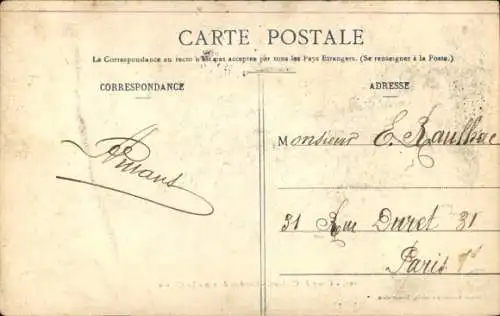 CARTE POSTALE
La Correspondance au recto n'est pas acceptée par tous les Pays Etrangers. (Se renseigner à la Poste.)
CORRESPONDANCE
ADRESSE
Monsieur E.
31 Rue Duret 31
Paris